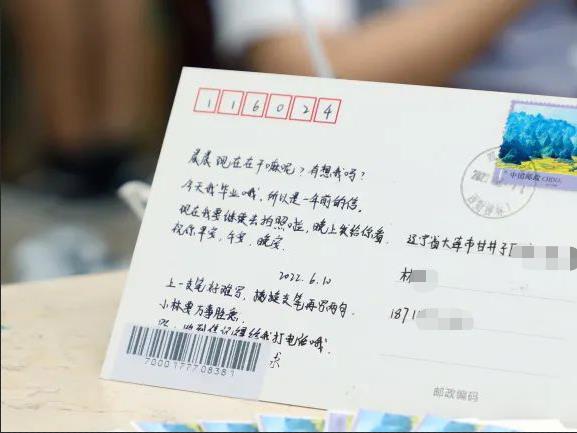 116024
晨晨现在在干嘛呢？有想我吗？
今天我毕业哦，所以是一年前的信。
现在我要继续去拍照啦，晚上发给你看
祝你早安，午安，晚安
2022.6.10
上一支笔好难写，换这支笔再写两句
小林要万事胜意
收到信记得给我打电话哦
7000177708381
中国邮政 CHINA
辽宁省大连市甘井子区
林
1871
邮政编码